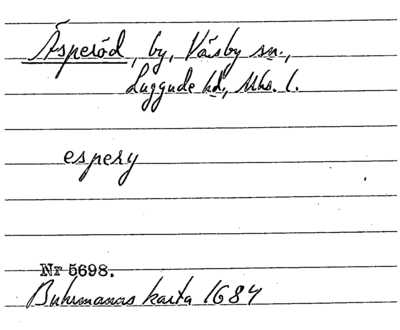 Äsperöd, by, Väsby sn.,
Luggude hd, Mhs. l.
espery
Nr 5698.
Buhrmanns karta 1684